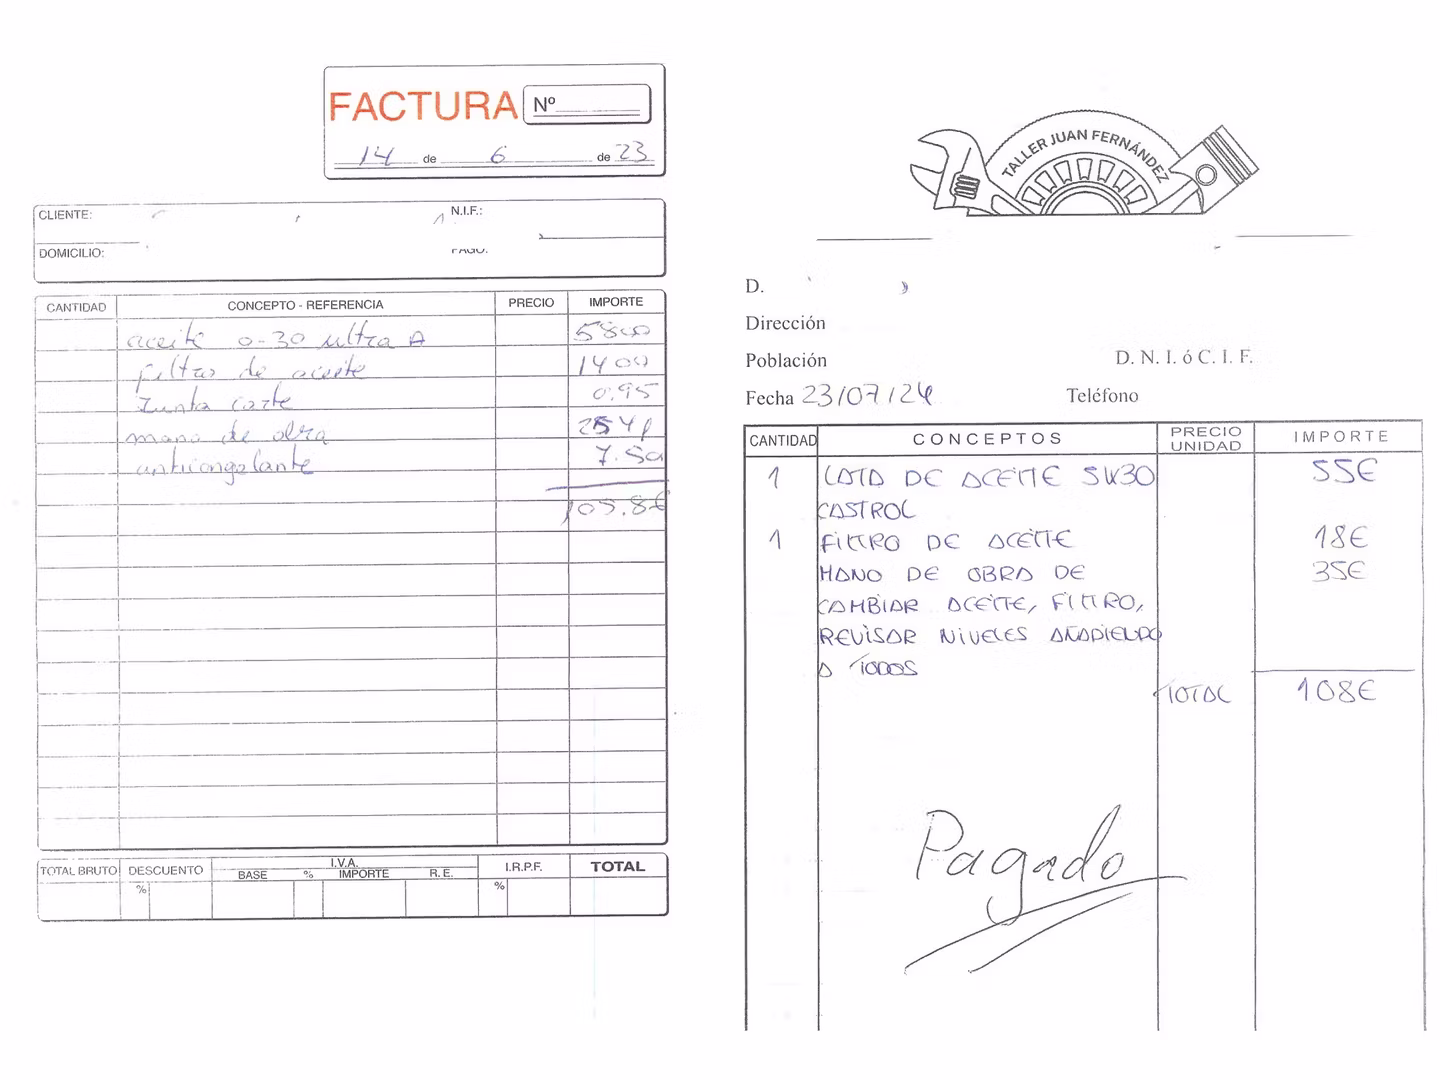 FACTURA Nº
14 de 6 de 23
CLIENTE: N.I.F.:
DOMICILIO:
CANTIDAD CONCEPTO - REFERENCIA PRECIO IMPORTE
aceite 0-30 ultra A 5800
filtro de aceite 1400
Junta carte 0.95
mano de obra
anticongelante 7.50
TOTAL BRUTO DESCUENTO I.V.A. I.R.P.F. TOTAL
BASE % IMPORTE R.E.
% %
TALLER JUAN FERNÁNDEZ
D.
Dirección
Población D. N. I. ó C. I. F.
Fecha 23/07/24 Teléfono
CANTIDAD CONCEPTOS PRECIO UNIDAD IMPORTE
1 LATA DE ACEITE 5W30 55€
CASTROL
1 FILTRO DE ACEITE 18€
MANO DE OBRA DE 35€
CAMBIAR ACEITE, FILTRO,
REVISAR NIVELES AÑADIENDO
A TODOS
TOTAL 108€
Pagado